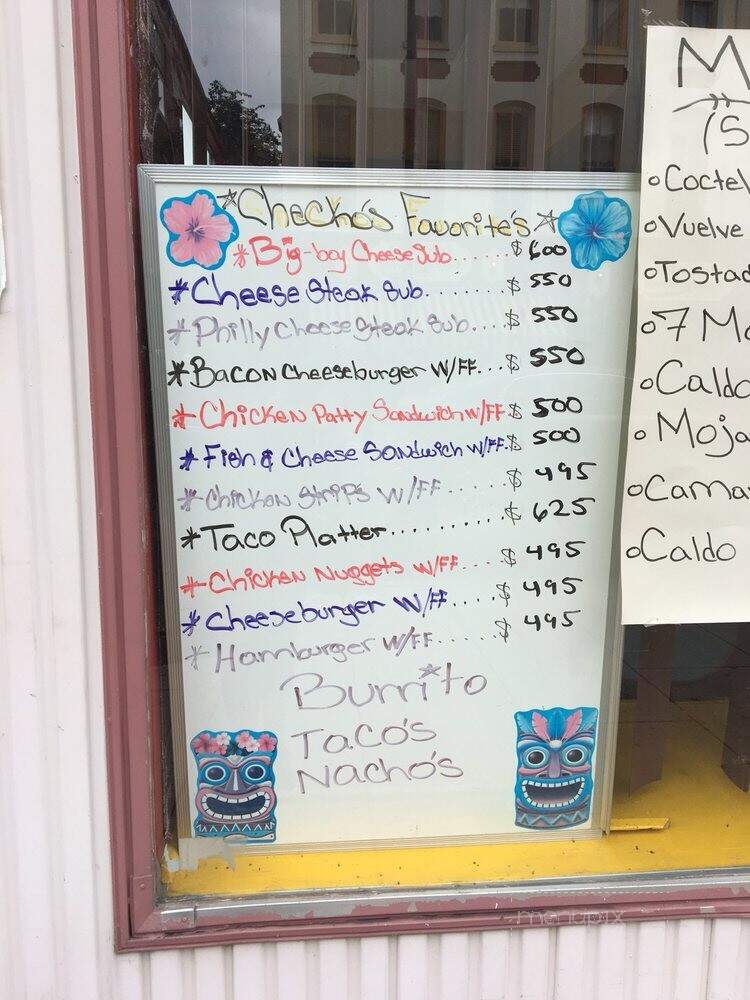 *Checho's Favorite's*
*Big-boy Cheese Sub......$ 600
*Cheese Steak Sub........$ 550
*Philly Cheese Steak Sub....$ 550
*Bacon Cheeseburger W/FF...$ 550
*Chicken Patty Sandwich W/FF.$ 500
*Fish & Cheese Sandwich W/FF.$ 500
*Chicken Strips W/FF......$ 495
*Taco Platter..........$ 625
*Chicken Nuggets W/FF....$ 495
*Cheeseburger W/FF....$ 495
*Hamburger W/FF.....$ 495
Burrito
Taco's
Nacho's
M
(S
Coctel
Vuelve
7 M
Caldo
Caldo
menupix